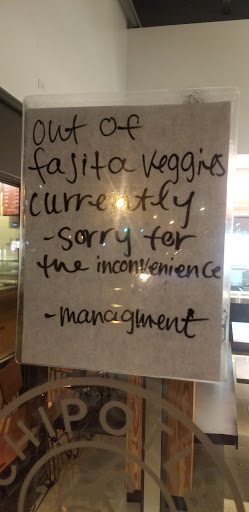 out of
fajita veggies
currently
- sorry for
the inconvenience
- managment
CHIPO